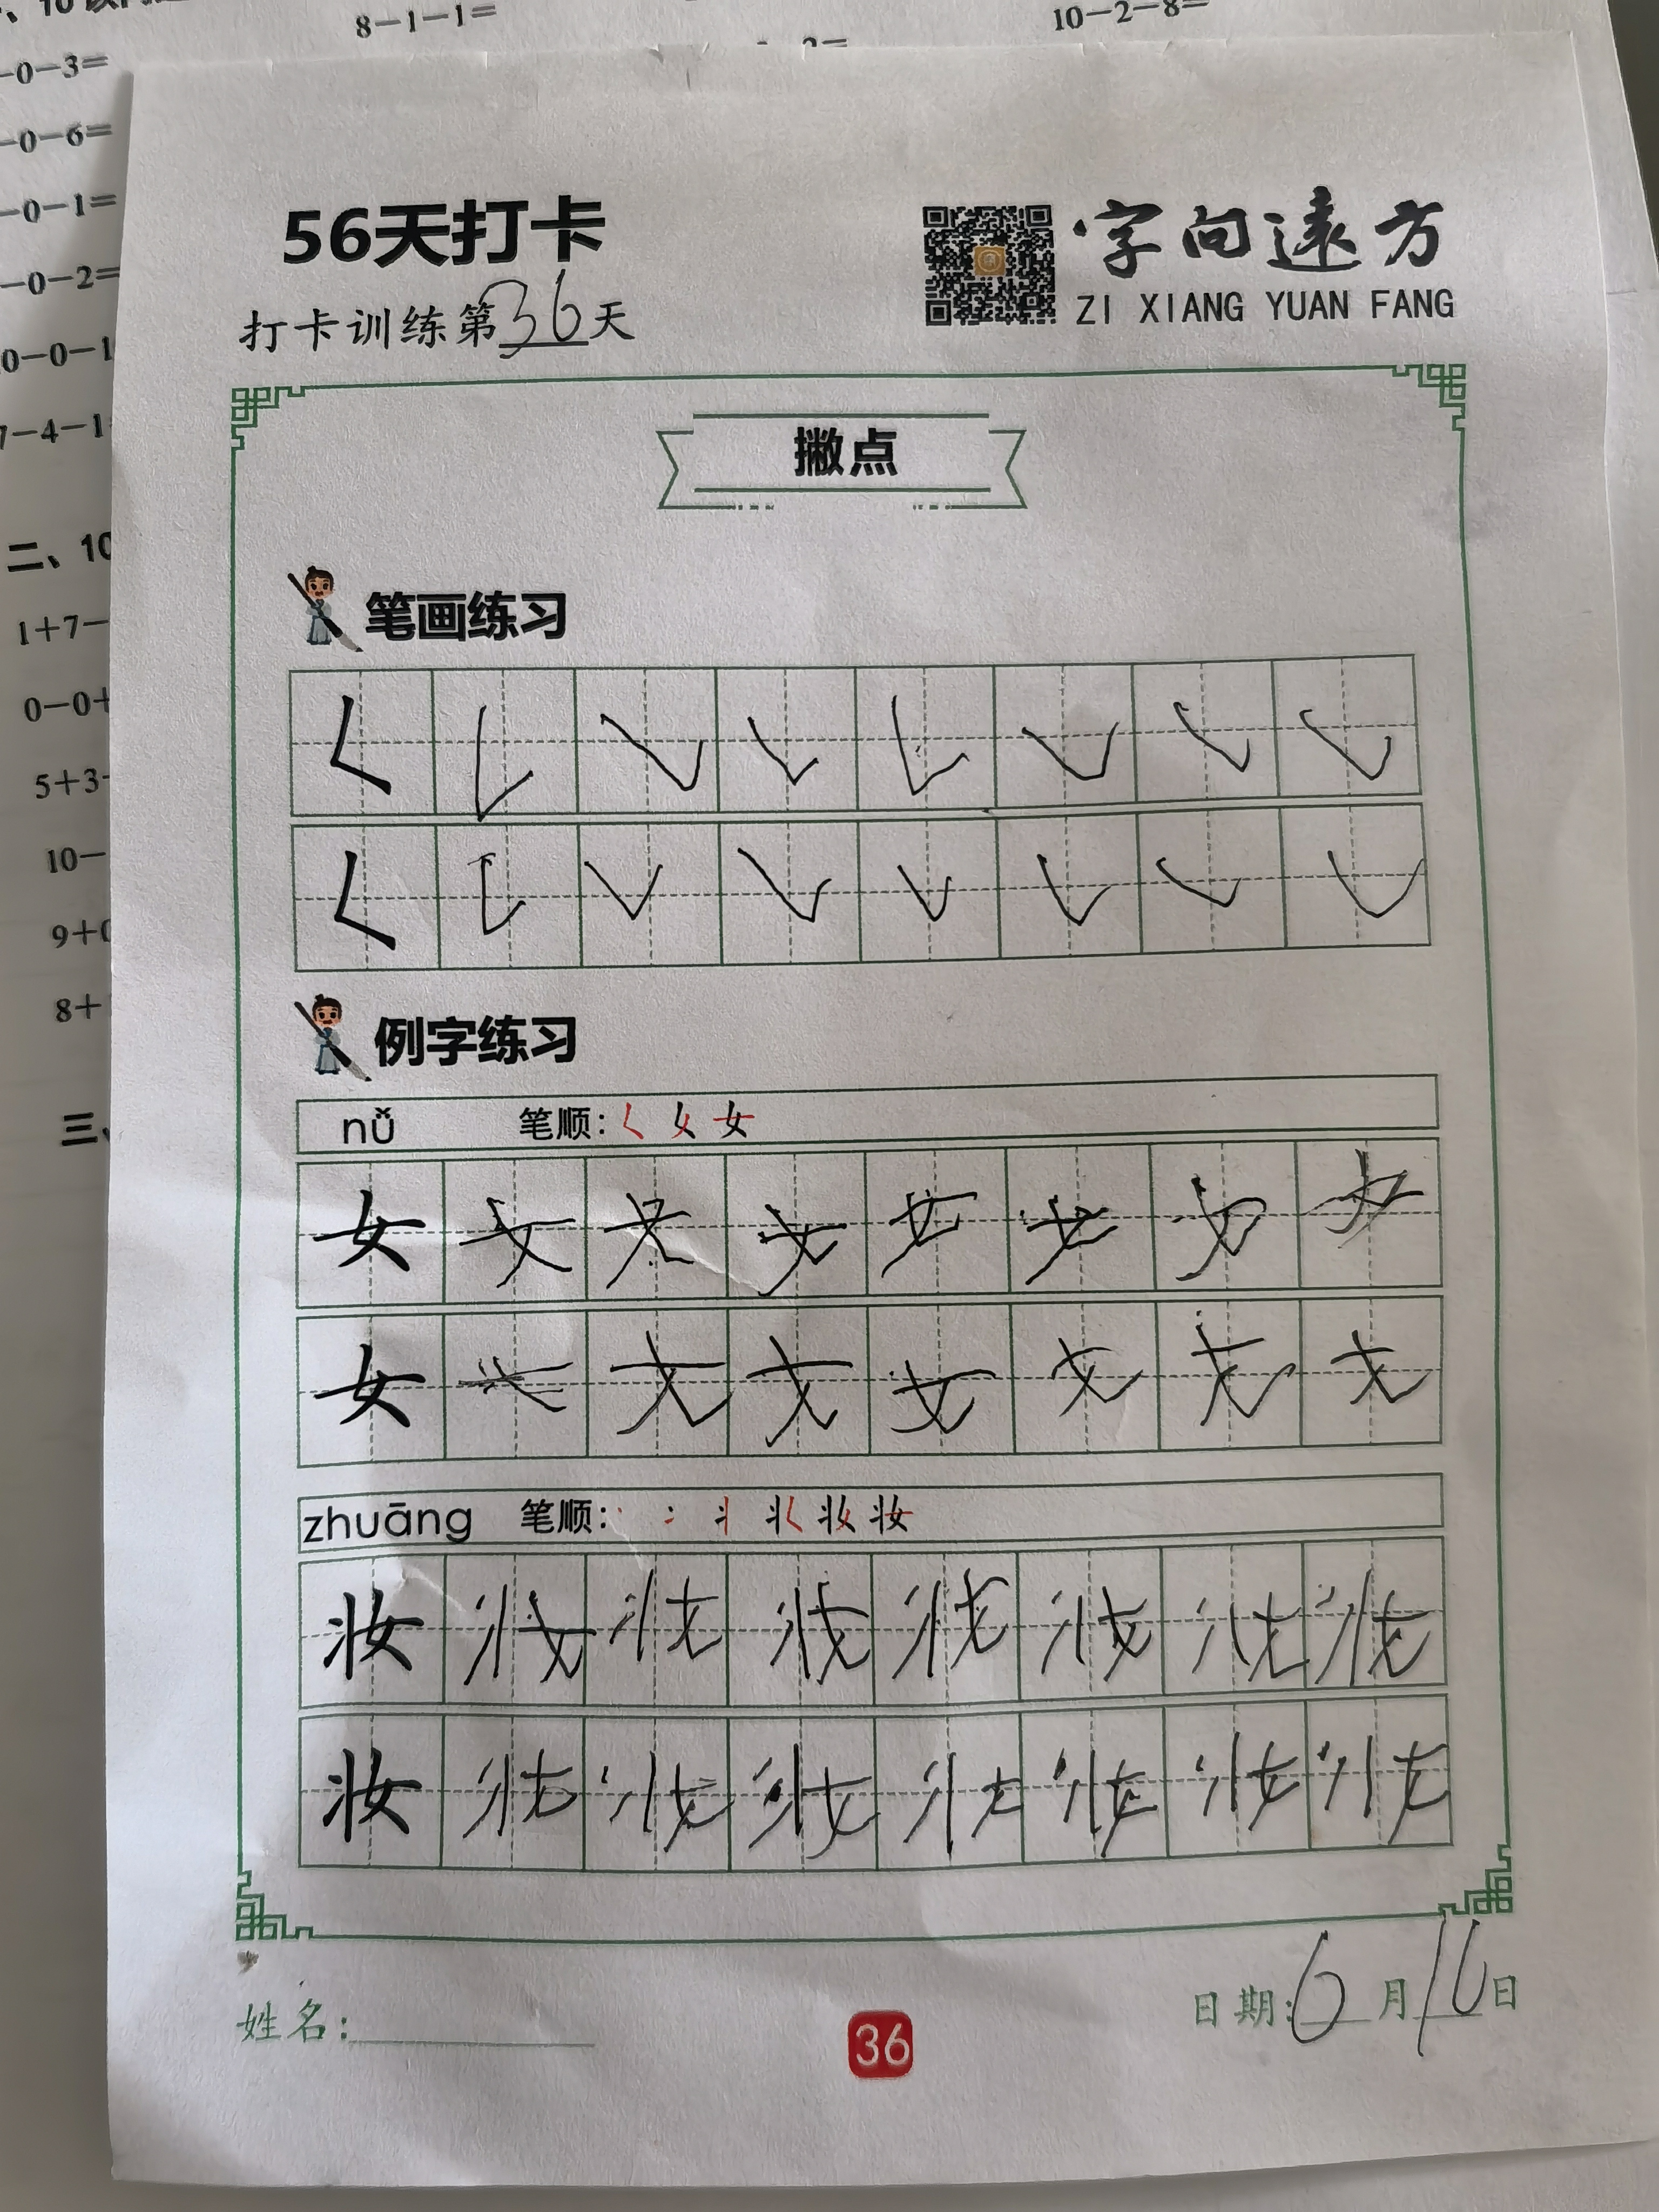 8-1-1=
10-2-8=
-0-3=
-0-6=
-0-1=
-0-2=
0-0-1
7-4-1
二、10
1+7-
0-0+
5+3-
10-
9+0
8+
三、
56天打卡
字向遠方
ZI XIANG YUAN FANG
打卡训练第36天
撇点
笔画练习
𡿨
𡿨
例字练习
nǚ 笔顺: 𡿨 女 女
女 女 女 女 女 女 女 女
女 女 女 女 女 女 女 女
zhuāng 笔顺: 妆
妆 妆 妆 妆 妆 妆 妆 妆
妆 妆 妆 妆 妆 妆 妆 妆
姓名:
36
日期: 6月10日